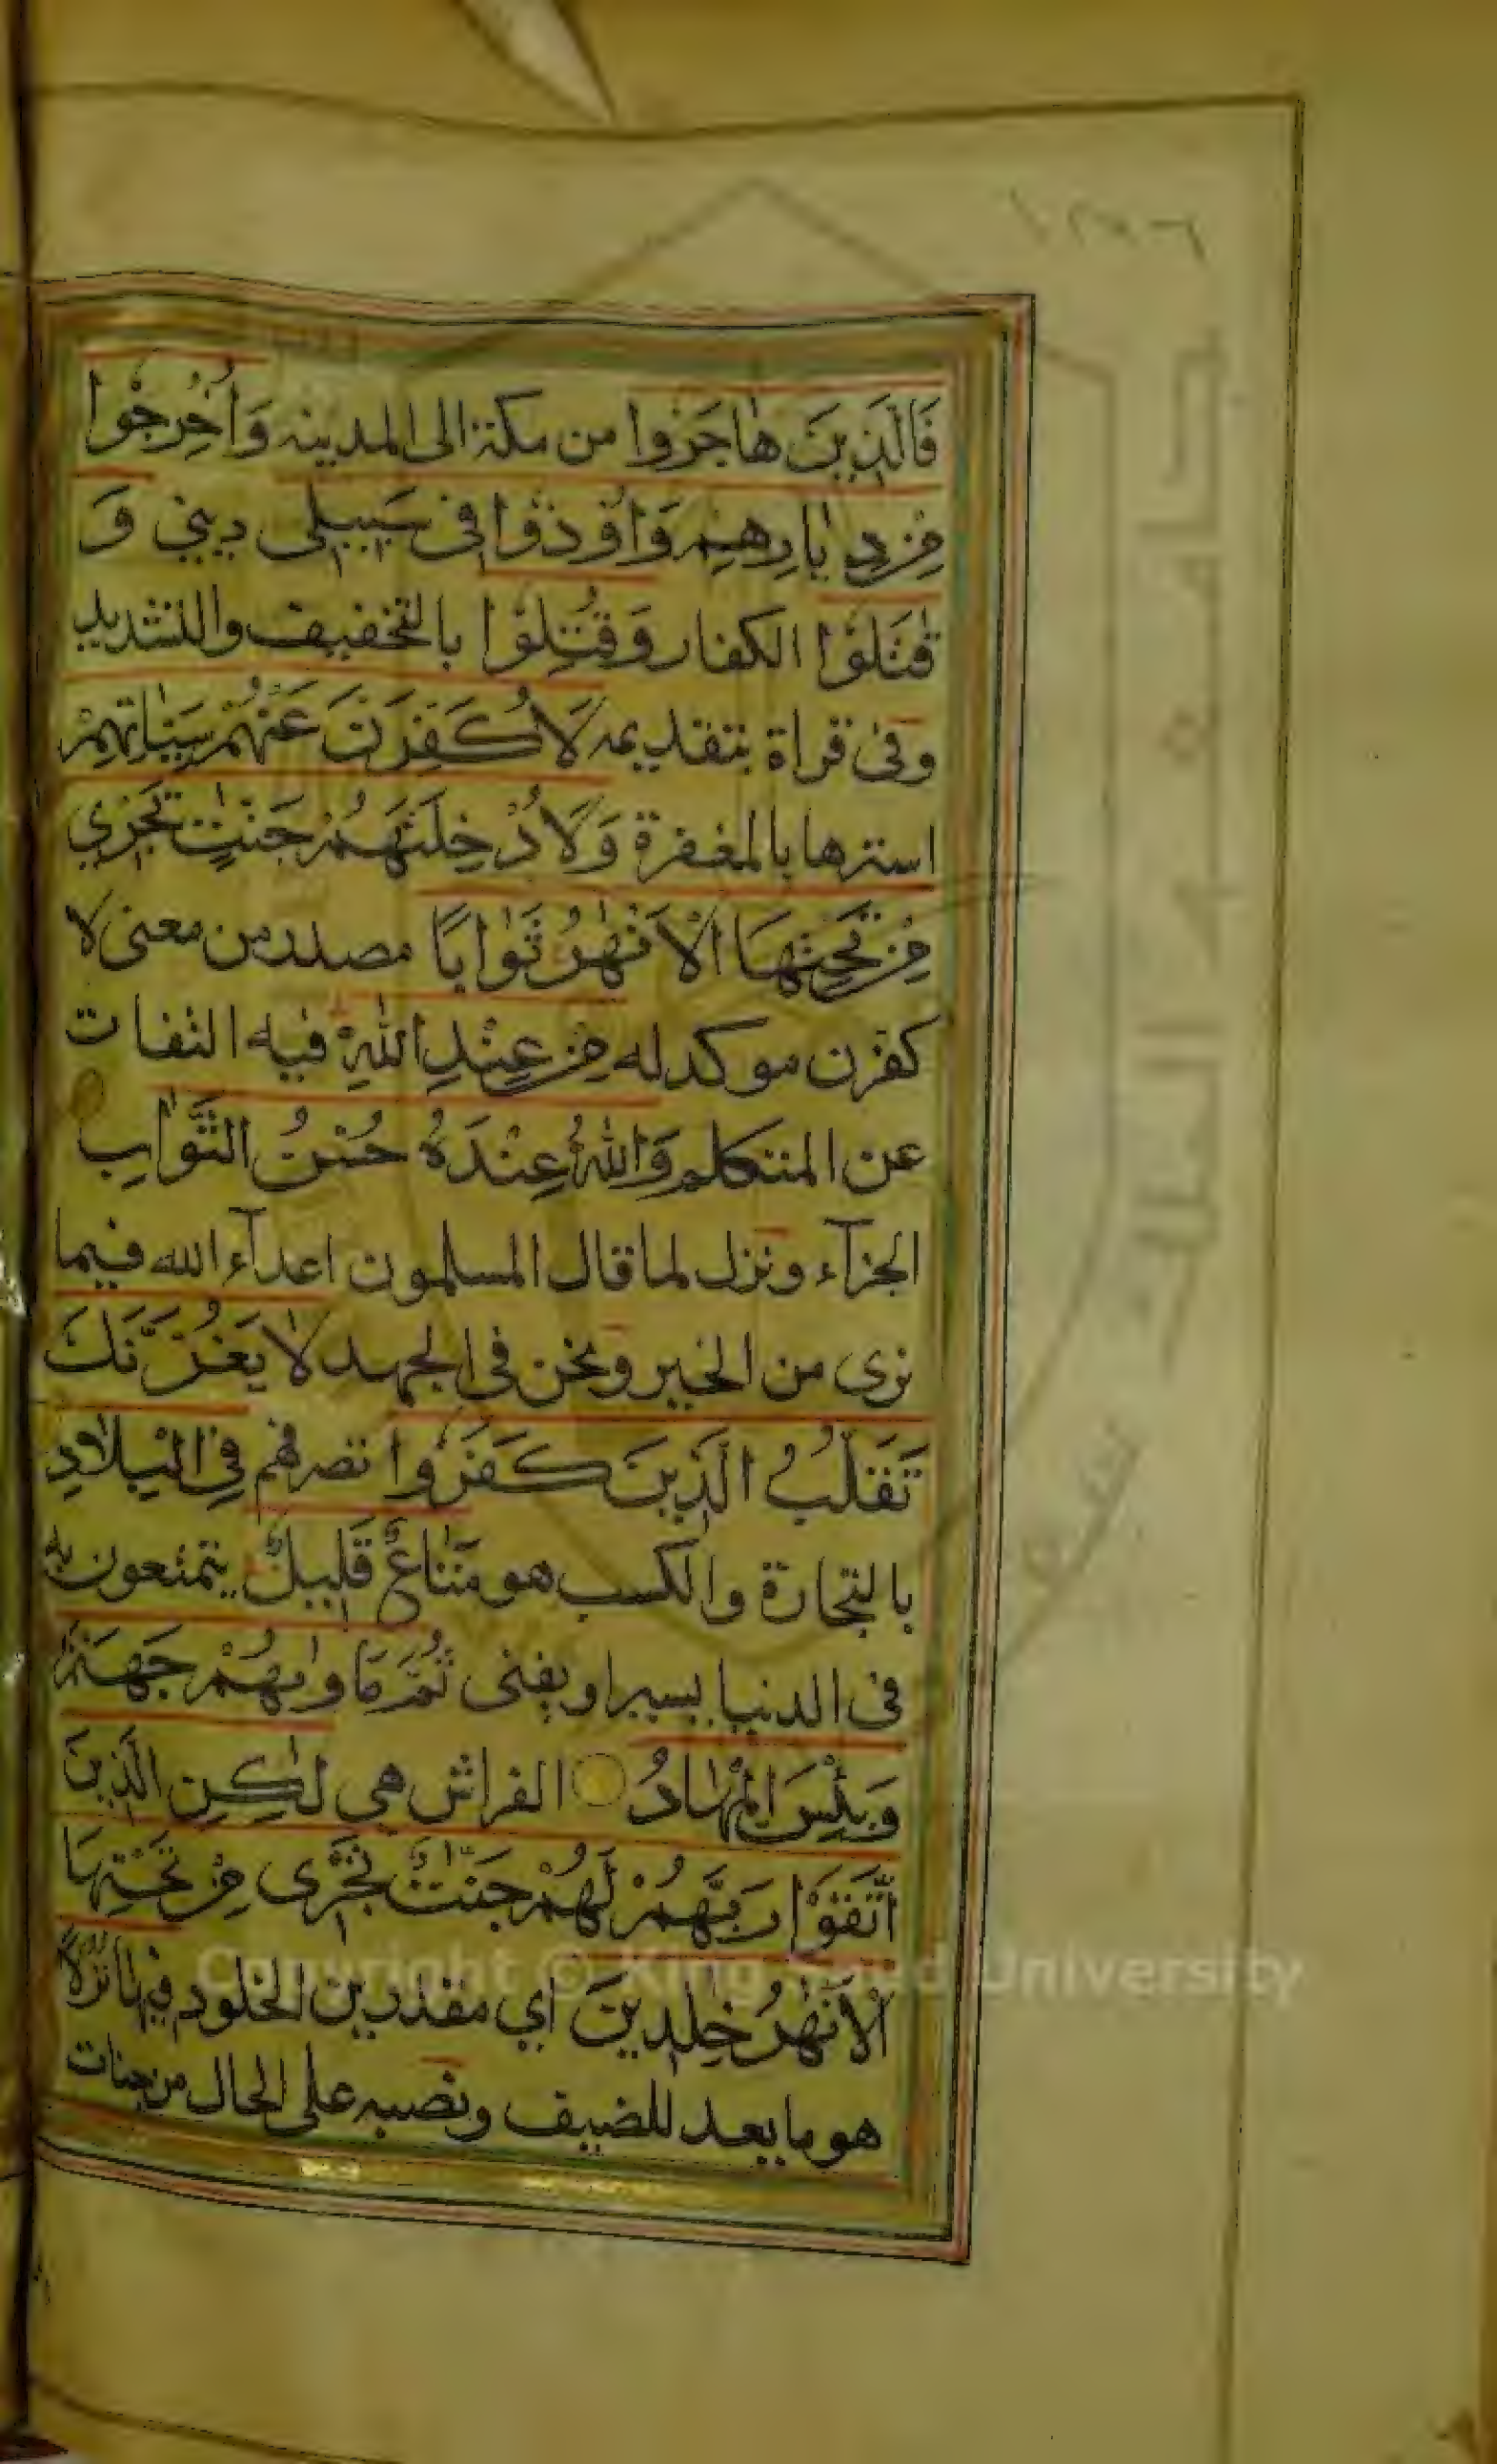 فَالَّذِينَ هَاجَرُوا من مكة الى المدينه وَاُخْرِجُوا
مِنْ دِيَارِهِمْ وَاُوذُوا فى سَبِيلِى ديني وَ
قٰتَلُوْا الكفار وَقُتِلُوْا بالتخفيف والتشديد
وفى قراة بتقديمه لَاُكَفِّرَنَّ عَنْهُمْ سَيِّاٰتِهِمْ
استرها بالمغفرة وَلَاُدْخِلَنَّهُمْ جَنّٰتٍ تَجْرِي
مِنْ تَحْتِهَا الْاَنْهٰرُ ثَوَابًا مصدر من معنى لا
كفرن موكد له مِنْ عِنْدِ اللّٰهِ فيه التفات
عن المتكلم وَاللّٰهُ عِنْدَهُ حُسْنُ الثَّوَابِ
الجزآء ونزل لما قال المسلمون اعدآء الله فيما
نرى من الخير ونحن فى الجهد لَا يَغُرَّنَّكَ
تَقَلُّبُ الَّذِينَ كَفَرُوا تصرفهم فِي الْبِلَادِ
بالتجارة والكسب هو مَتَاعٌ قَلِيلٌ يتمتعون به
فى الدنيا يسيرا ويفنى ثُمَّ مَاْوٰىهُمْ جَهَنَّمُ
وَبِئْسَ الْمِهَادُ الفراش هي لٰكِنِ الَّذِينَ
اتَّقَوْا رَبَّهُمْ لَهُمْ جَنّٰتٌ تَجْرِى مِنْ تَحْتِهَا
الْاَنْهٰرُ خٰلِدِينَ اي مقدرين الخلود فِيهَا نُزُلًا
هو ما يعد للضيف ونصبه على الحال من جنات
Copyright © King Saud University